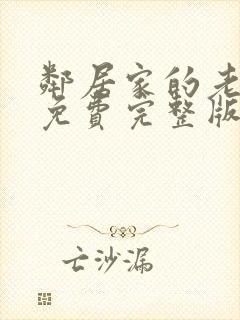 鄰居家的老
免費完整版
亡沙漏